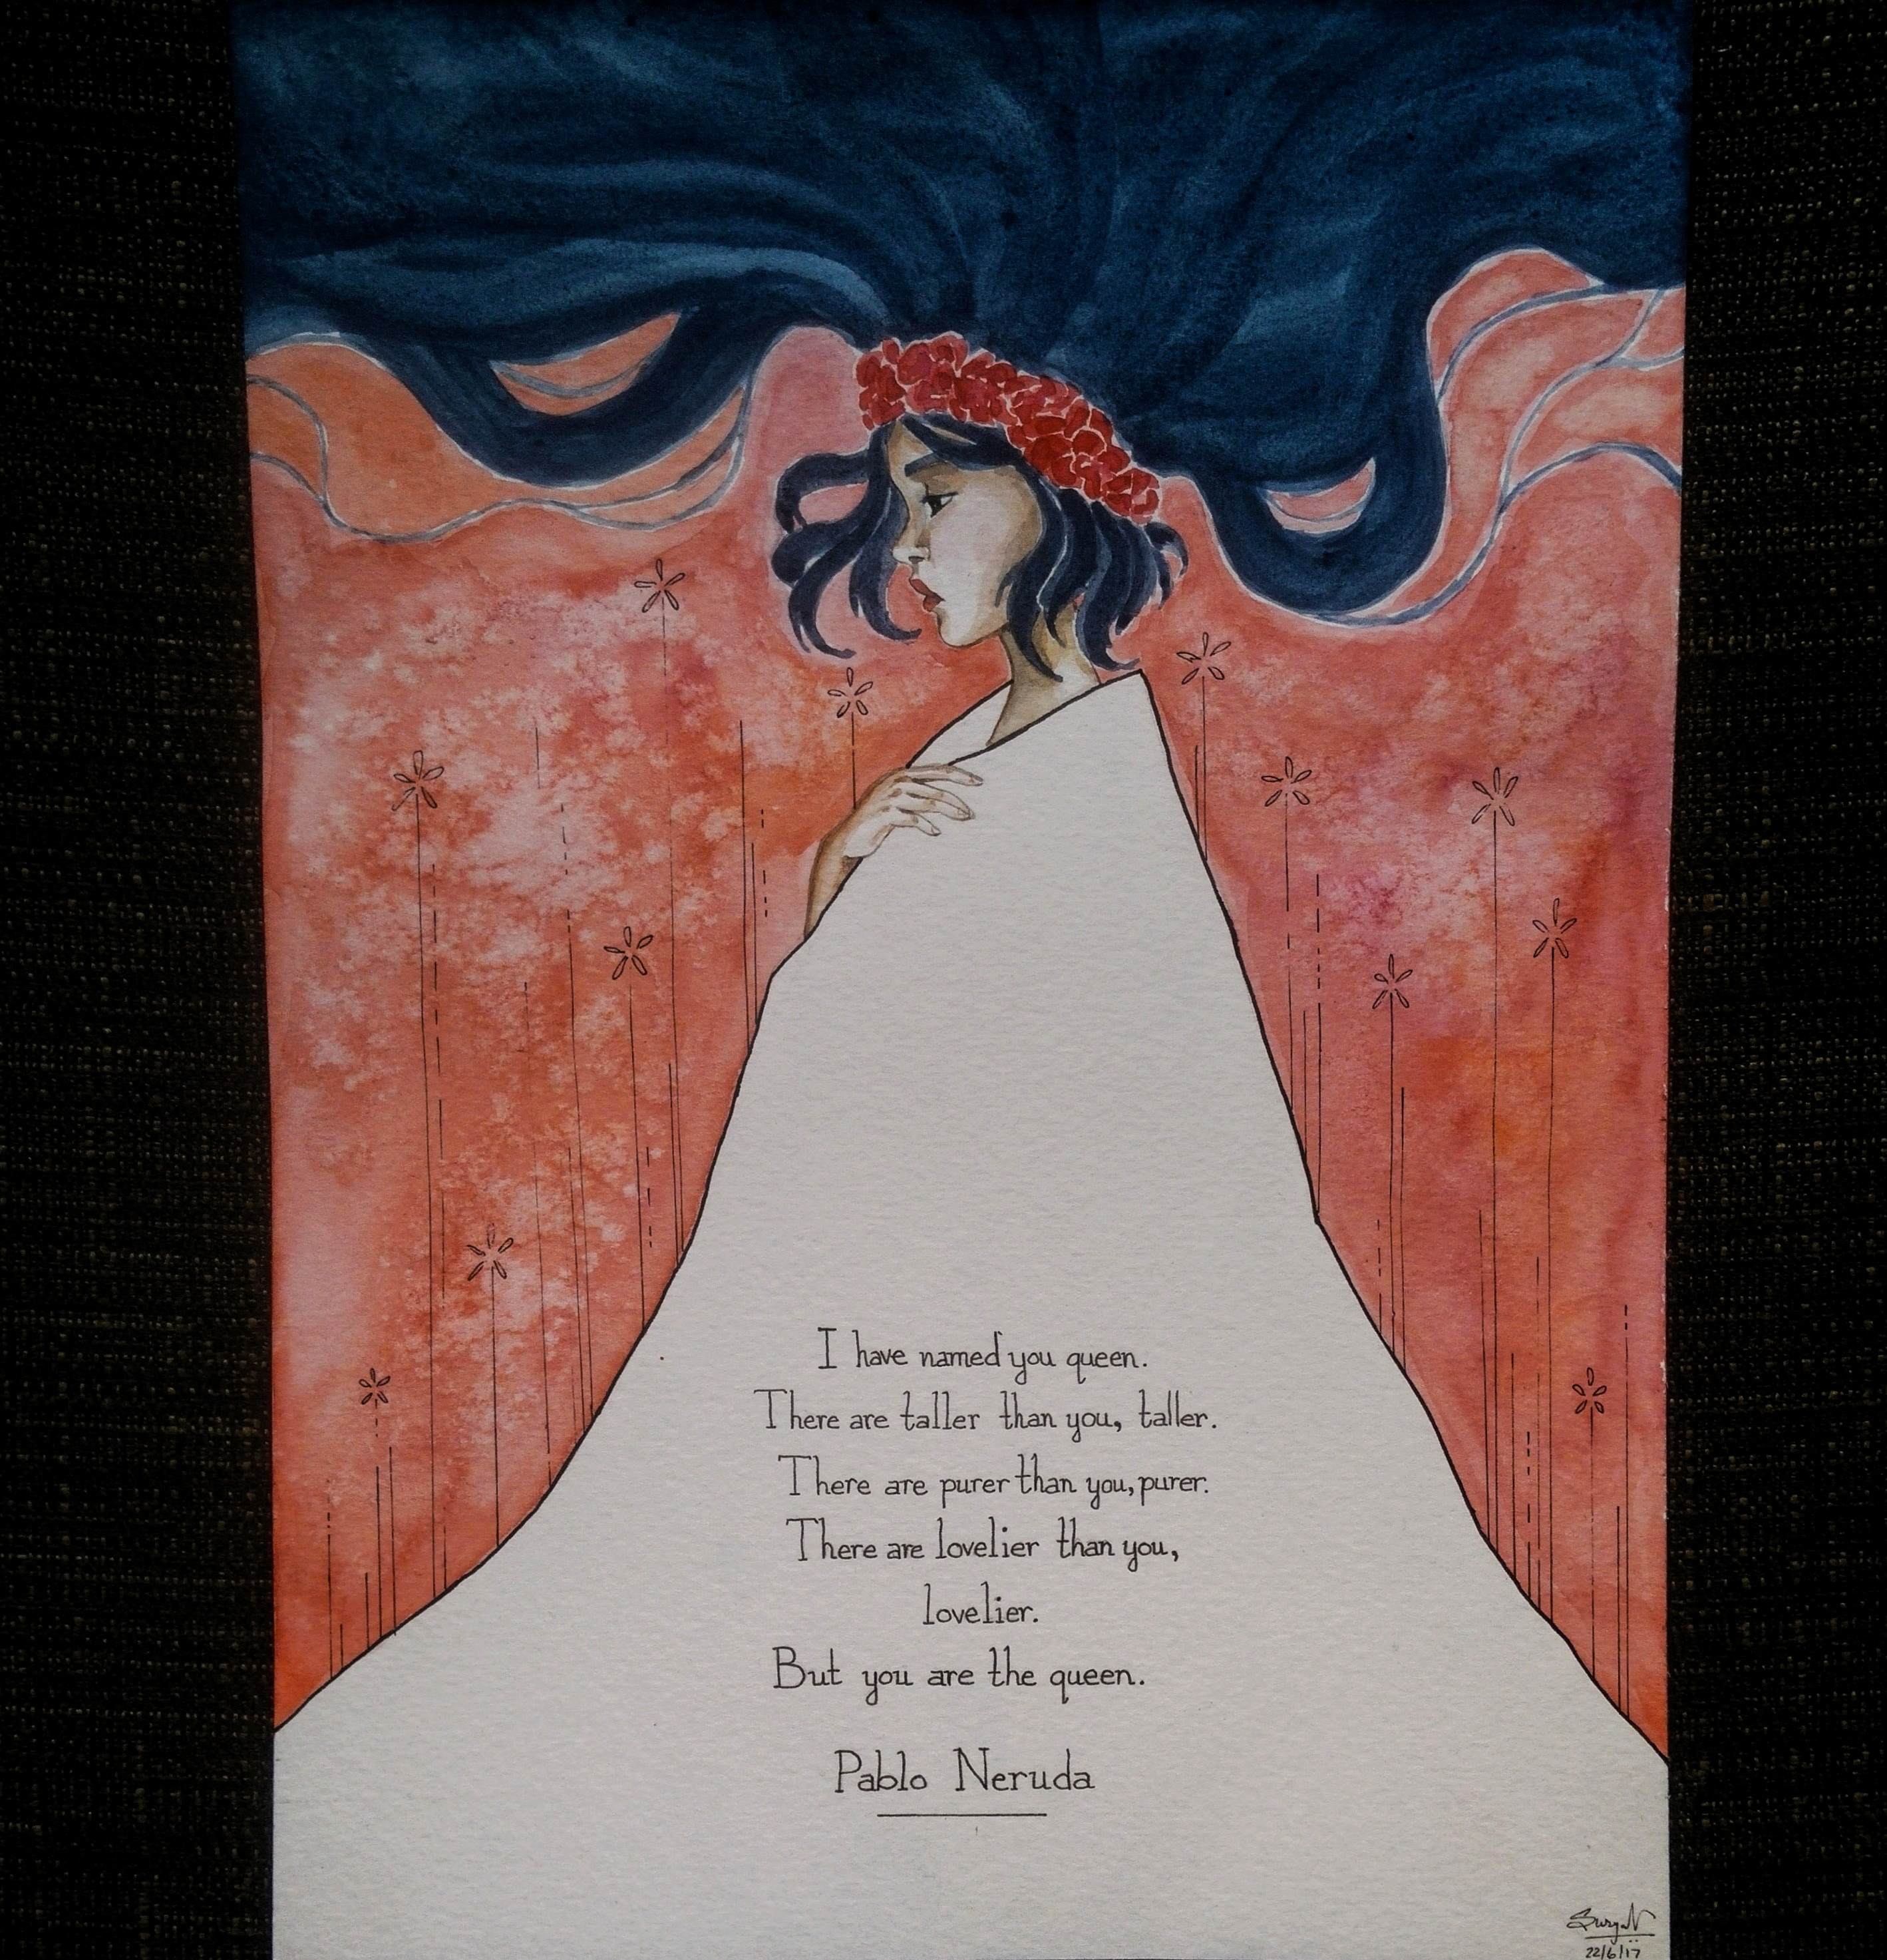 I have named you queen.
There are taller than you, taller.
There are purer than you, purer.
There are lovelier than you,
lovelier.
But you are the queen.
Pablo Neruda
22/6/17